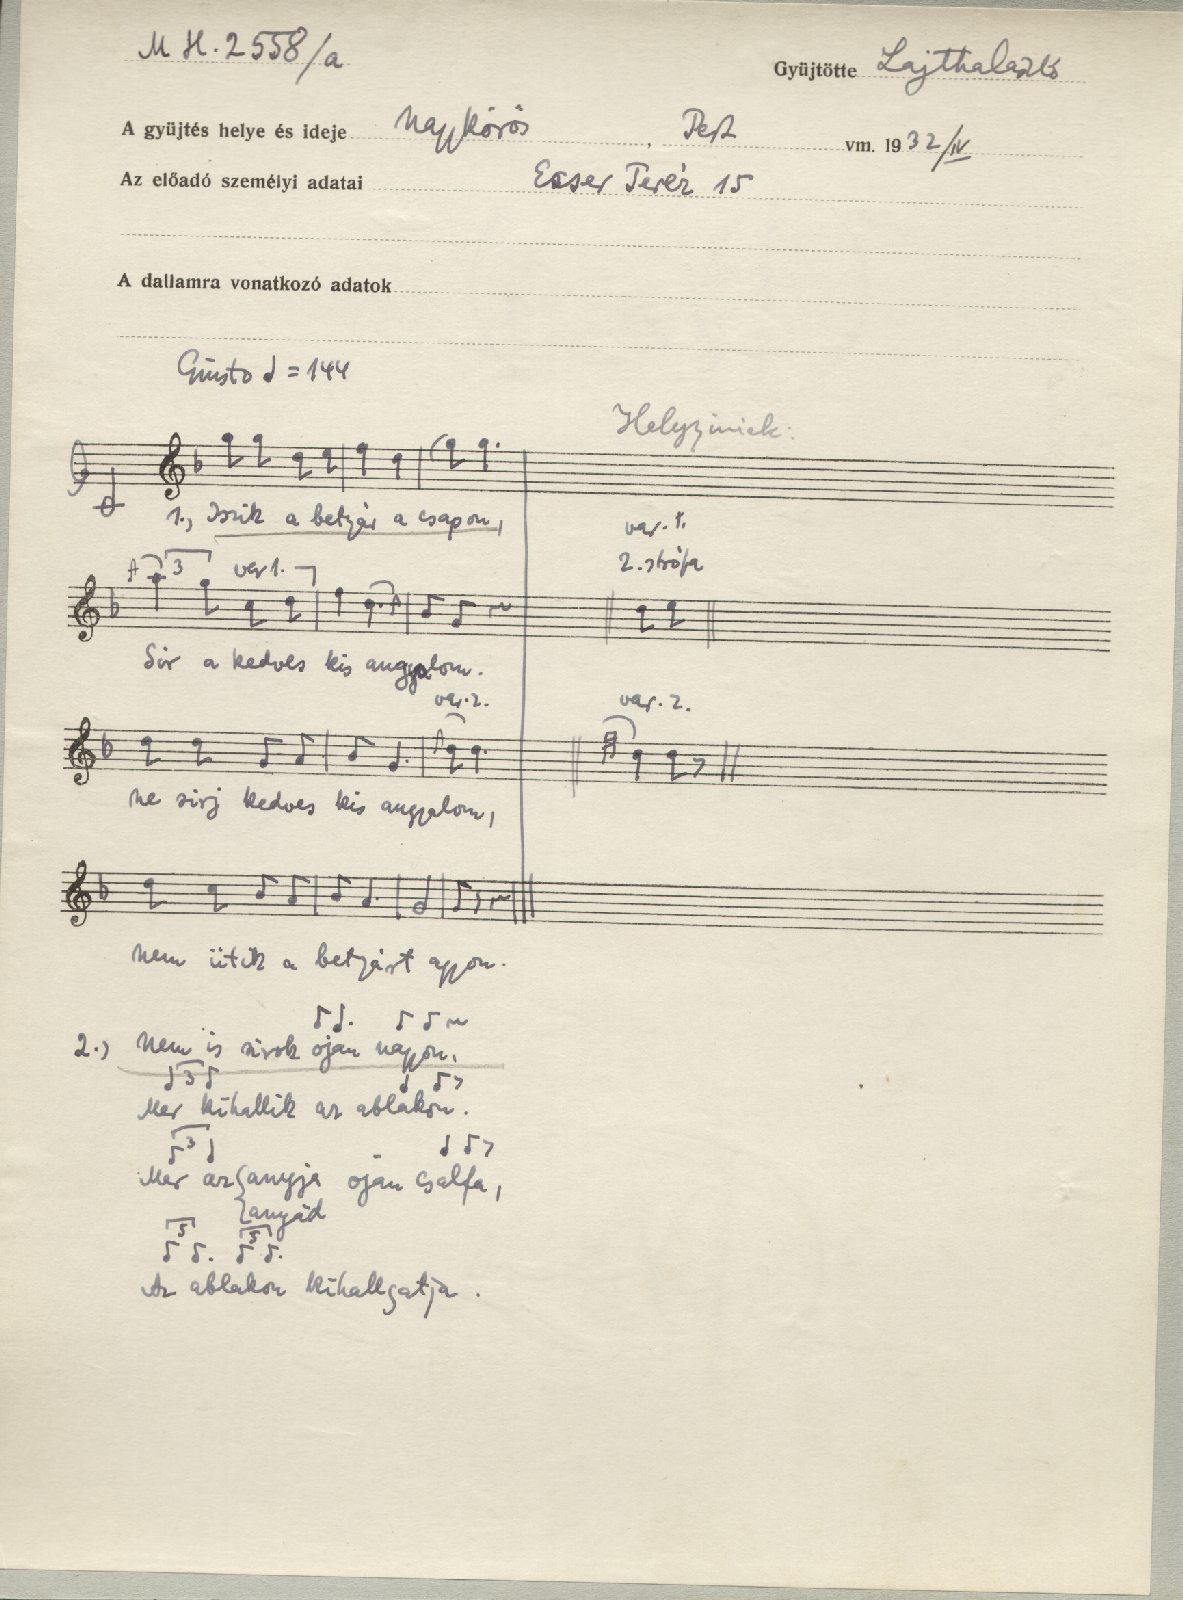 M H. 2558/a
Gyüjtötte Lajtha László
A gyüjtés helye és ideje Nagykőrös, Pest vm. 1932/IV
Az előadó személyi adatai Ecser Teréz 15
A dallamra vonatkozó adatok
Giusto = 144
Helyszíniek:
1., Iszik a betyár a csapon,
var. 1.
2. strófa
3 var 1.
Sir a kedves kis angyalom.
var. 2.
var. 2.
ne sirj kedves kis angyalom,
nem ütik a betyárt agyon.
2., Nem is sirok ojan nagyon,
3
Mer kihallik az ablakon.
3
Mer az anyja ojan csalfa,
anyád
5 5
Az ablakon kihallgatja.